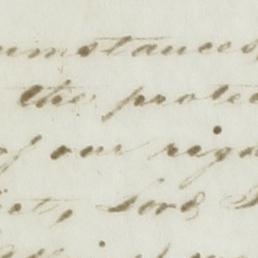 cumstances,
the protec
of our righ
ct, Lord